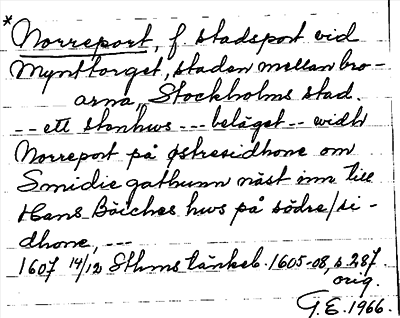 * Norreport, f stadsport vid
Mynttorget, staden mellan bro-
arna, Stockholms stad.
-- ett stenhws --- beläget -- widh
Norreport på östresidhone om
Smidie gathunn näst inn till
Hans Böiches hws på södre/si-
dhone, ---
1607 14/12 Sthms tänkeb. 1605-08, s 287
orig.
G.E. 1966.